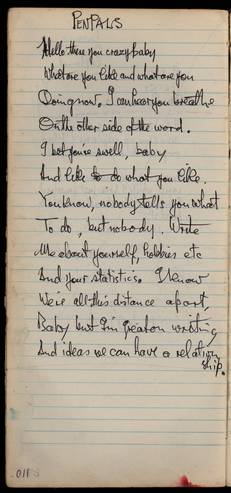 PENPALS
Hello there you crazy baby
What are you like and what are you
Doing now. I can hear you breathe
On the other side of the word.
I bet you're swell, baby
And like to do what you like.
You know, nobody tells you what
To do, but nobody. Write
Me about yourself, hobbies etc
And your statistics. I know
We're all this distance apart,
Baby but I'm great on writing
And ideas we can have a relation
ship.
011